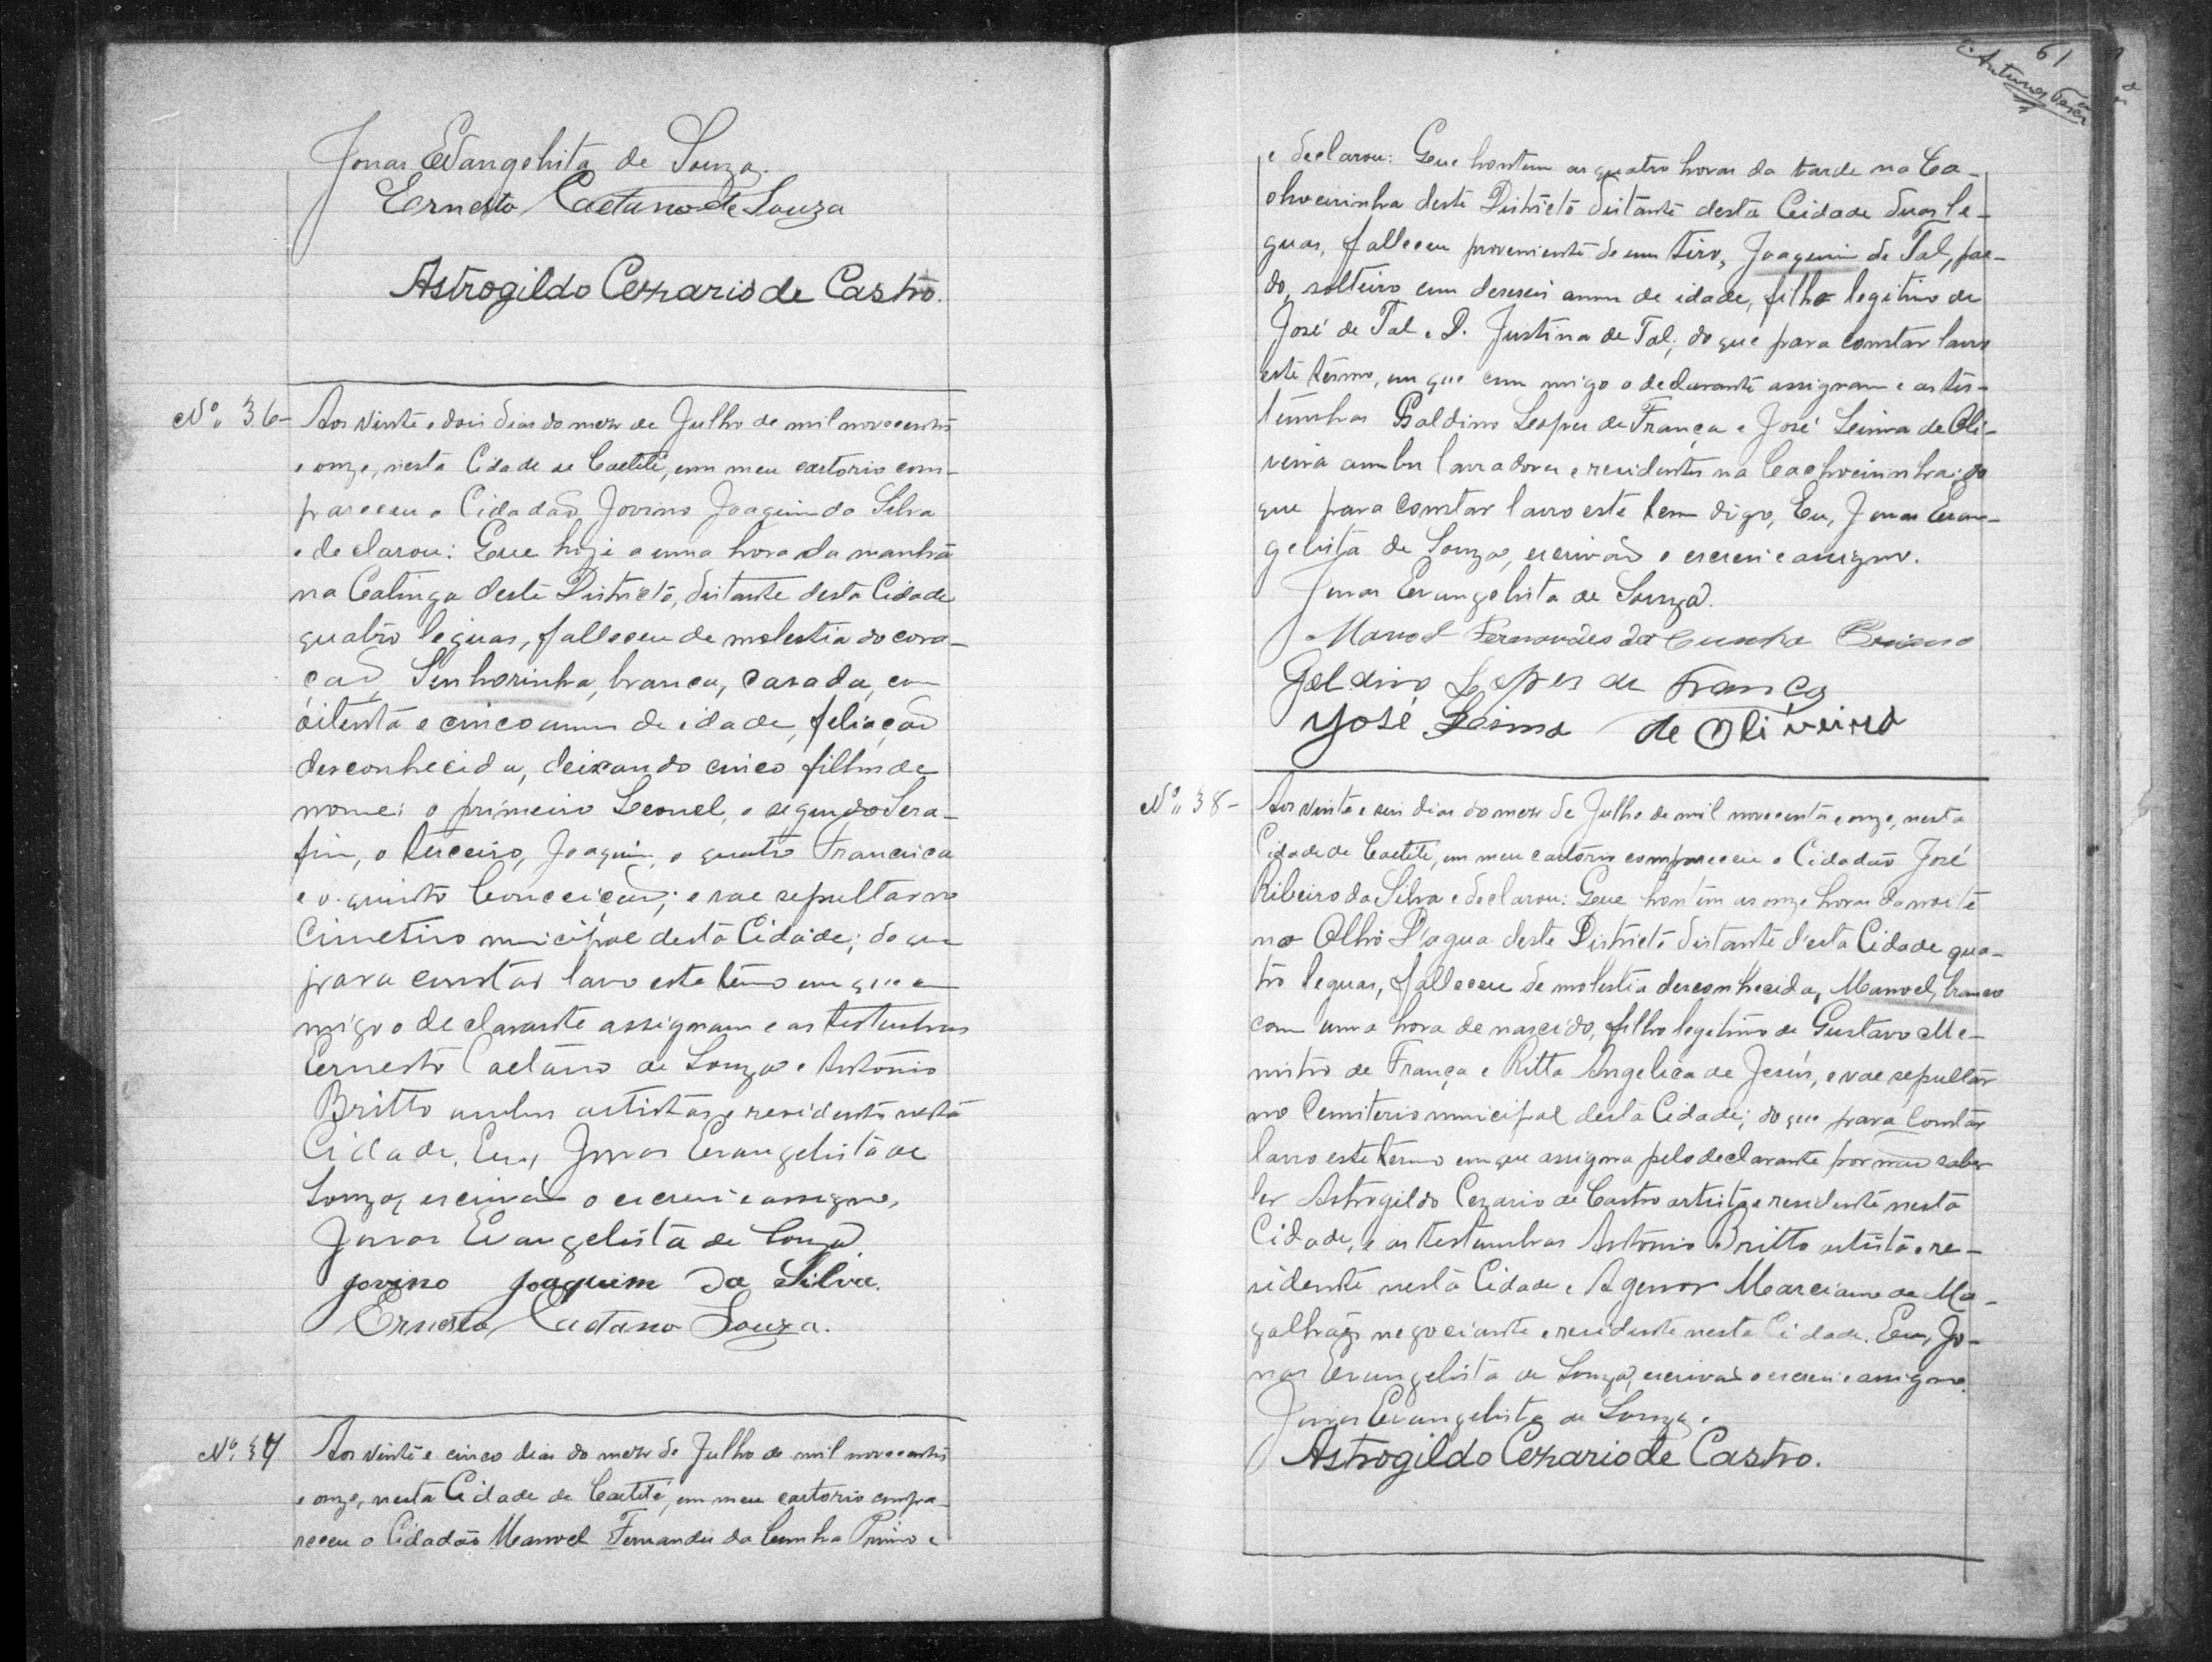 Jonas Evangelista de Souza.
Ernesto Caetano de Souza
Astrogildo Cezario de Castro.
Nº 36- Aos vinte e dois dias do mez de Julho de mil novecentos
e onze, nesta Cidade de Caetité, em meu cartorio com-
pareceu o Cidadão Jovino Joaquim da Silva
e declarou: Que hoje a uma hora da manhã
na Catinga deste Districto, distante desta Cidade
quatro leguas, falleceu de molestia do cora-
ção, Senhorinha, branca, casada, com
oitenta e cinco annos de idade, feliação
desconhecida, deixando cinco filhos de
nome: o primeiro Leonel, o segundo Sera-
fim, o terceiro, Joaquim, o quatro Francisca
e o quinto Conceição; e vae sepultar no
Cimetiro municipal desta Cidade; do que
para constar lavro este termo em que com
migo o declarante assignam e as testunhas
Ernesto Caetano de Souza e Antonio
Britto ambos artistas e residentes nesta
Cidade. Eu, Jonas Evangelista de
Souza, escrivão o escrevi e assigno.
Jonas Evangelista de Souza
jovino joaquim da Silva.
Ernesto Caetano Souza.
Nº 37 Aos vinte e cinco dias do mez de Julho de mil novecentos
e onze, nesta Cidade de Caetité, em meu cartorio compa-
receu o Cidadão Manoel Fernandes da Cunha Primo e
61
Antunes
e declarou: Que hontem as quatro horas da tarde na Ca-
choeirinha deste Districto distante desta Cidade duas le-
guas, falleceu proveniente de um tiro, Joaquim de Tal, par-
do, solteiro com deseseis annos de idade, filho legitimo de
José de Tal e D. Justina de Tal; do que para constar lavro
este termo, em que com migo o declarante assignam e as tes-
temunhas Galdino Lopes de França e José Leima de Oli-
veira ambos lavradores e residentes na Cachoeirinha; do
que para constar lavro este tem digo, Eu, Jonas Evan-
gelista de Souza, escrivão o escrevi e assigno.
Jonas Evangelista de Souza.
Manoel Fernandes da Cunha Primo
Galdino Lopes de França
José Leima de Oliveira
Nº 38- Aos vinte e seis dias do mez de Julho de mil novecentos e onze, nesta
Cidade de Caetité, em meu cartorio compareceu o Cidadão José
Ribeiro da Silva e declarou: Que hontem as onze horas da noite
no Olho D'agua deste Districto distante d'esta Cidade qua-
tro leguas, falleceu de molestia desconhecida, Manoel, branco
com uma hora de nascido, filho legitimo de Gustavo Me-
nistro de França e Ritta Angelica de Jesús, e vae sepultar
no Cemiterio municipal desta Cidade; do que para constar
lavro este termo em que assigna pelo declarante por não saber
ler Astrogildo Cezario de Castro artista e residente nesta
Cidade, e as testumhas Antonio Britto artista e re-
sidente nesta Cidade e Agenor Marciano de Ma-
galhães negociante e residente nesta Cidade. Eu, Jo-
nas Evangelista de Souza, escrivão o escrevi e assigno.
Jonas Evangelista de Souza.
Astrogildo Cezario de Castro.